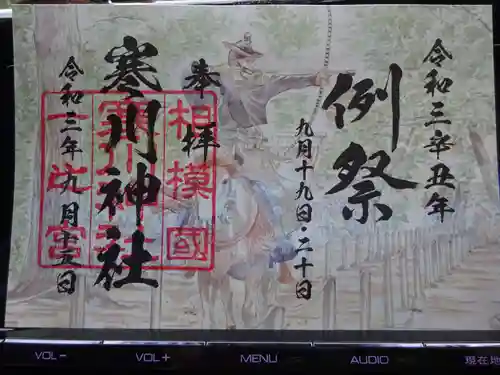 令和三辛丑年
例祭
九月十九日・二十日
奉拝
寒川神社
令和三年九月十五日
相模國
寒川神社
一之宮
VOL−
VOL+
MENU
AUDIO
現在地